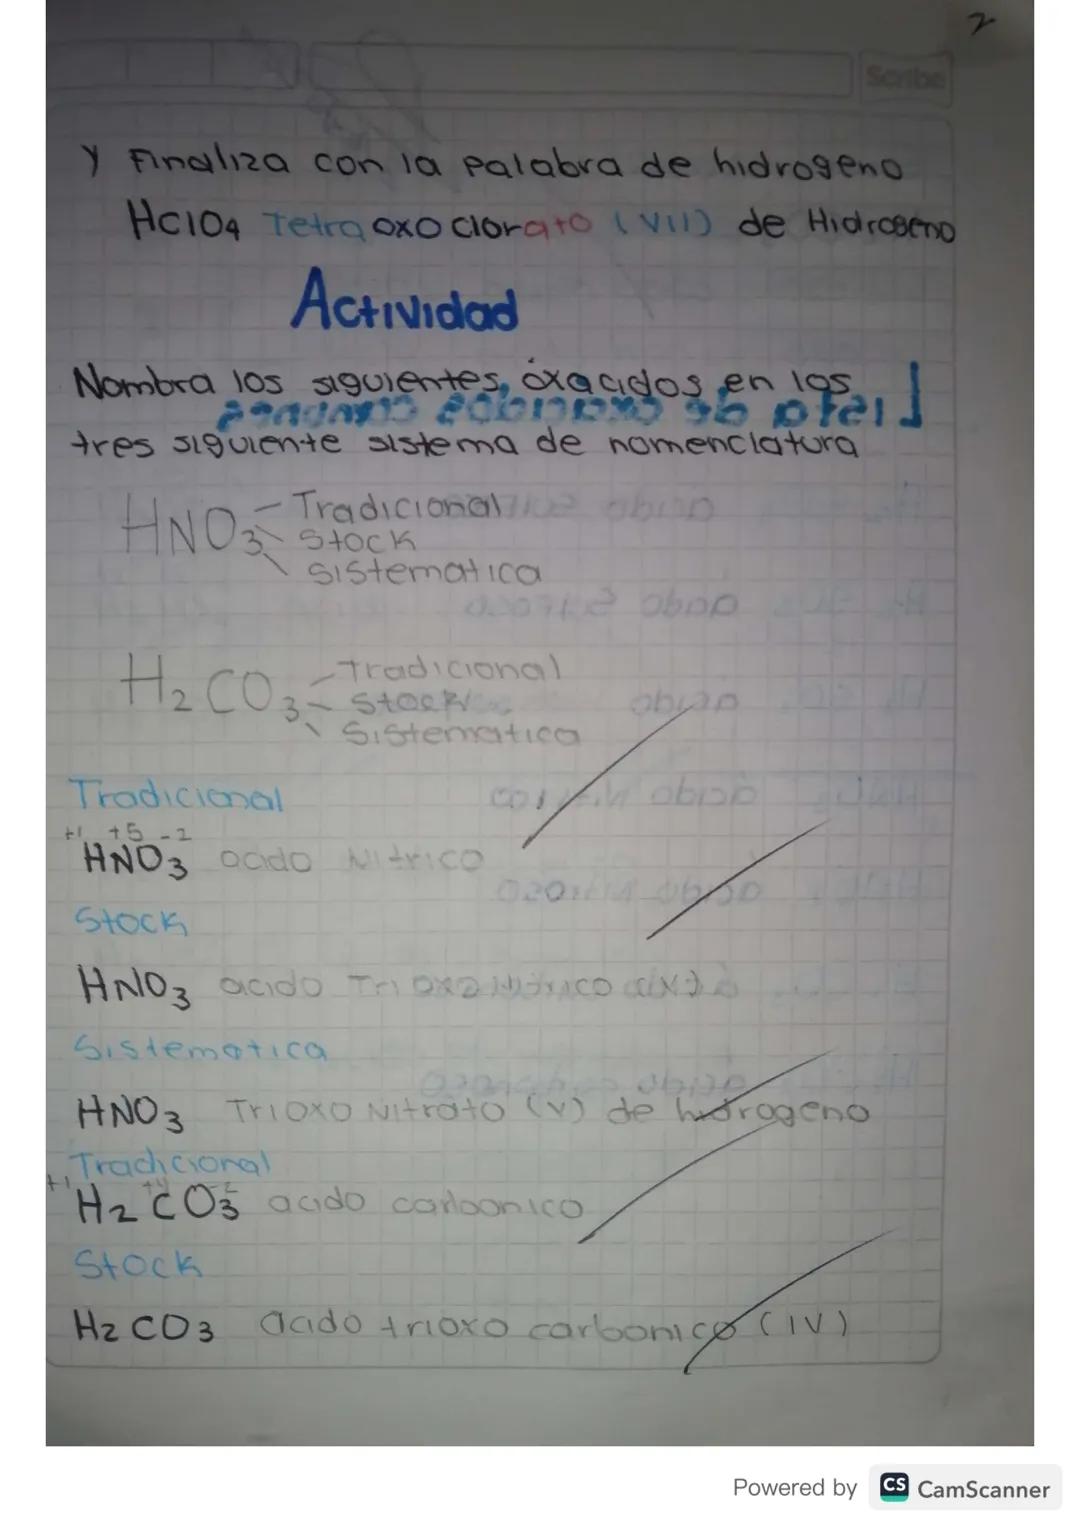 2
Scribe
y Finaliza con la palabra de hidrogeno
HClO4 Tetra oxo clorato (VII) de Hidrogeno
Actividad
Nombra los siguientes, óxacidos en las
tres siguiente sistema de nomenclatura
HNO3 Tradicional
Stock
Sistematica
H2CO3 Tradicional
Stock
Sistematica
Tradicional
+1 +5 -2
HNO3 acido Nitrico
Stock
HNO3 acido Tri oxo Nitrico
Sistematica
HNO3 Trioxo Nitrato (V) de hidrogeno
Tradicional
+1 +4 -2
H2CO3 acido carbonico
Stock
H2CO3 acido trioxo carbonico (IV)
Powered by CS CamScanner